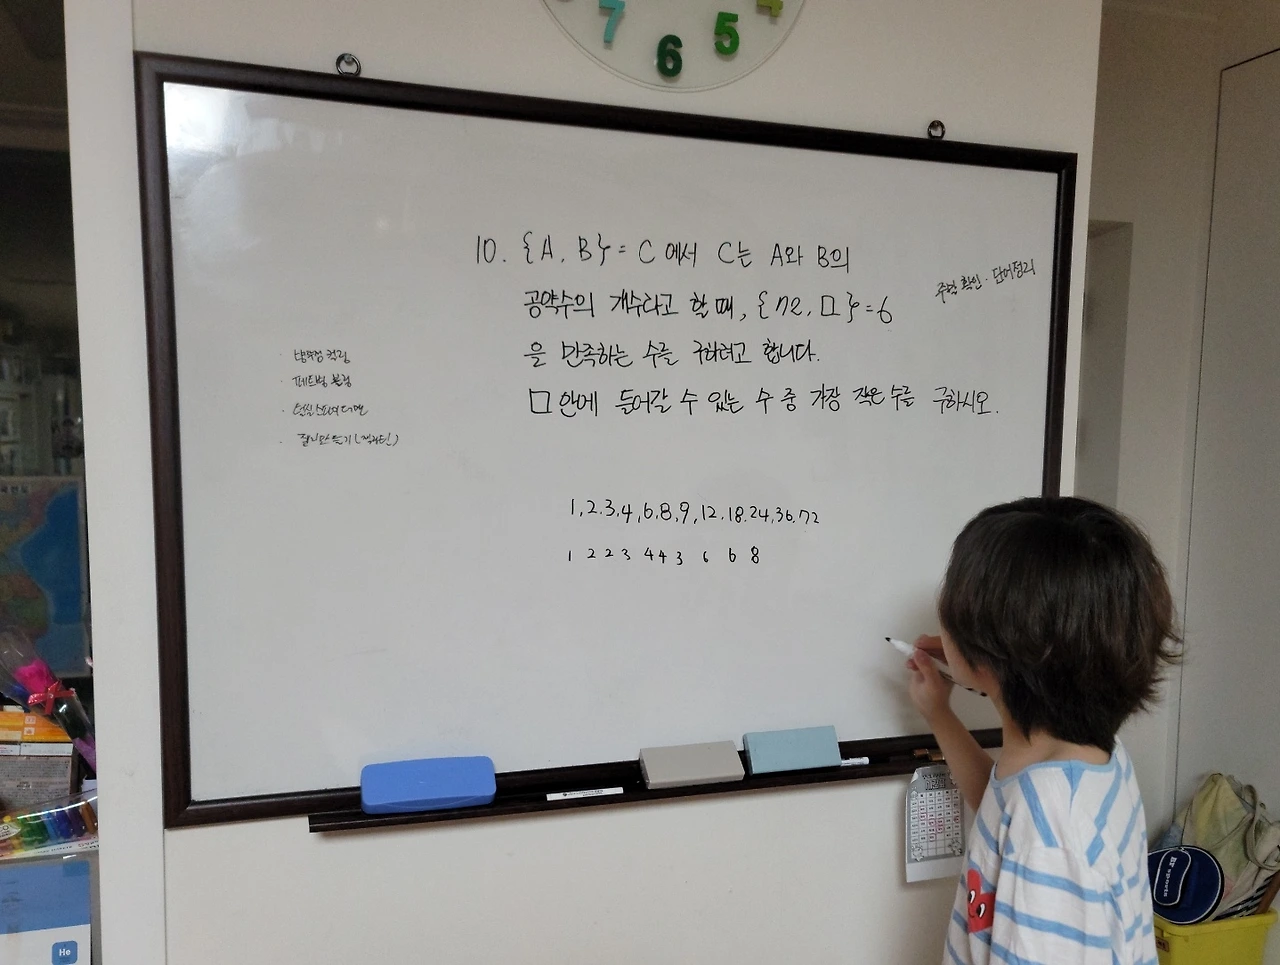 7 6 5 4
10. {A, B} = C 에서 C는 A와 B의
공약수의 개수라고 할 때, {72, □} = 6
을 만족하는 수를 구하려고 합니다.
□안에 들어갈 수 있는 수 중 가장 작은 수를 구하시오.
확인 · 단어정리
1, 2. 3, 4, 6, 8, 9, 12, 18. 24, 36, 72
1 2 2 3 4 4 3 6 6 8
He